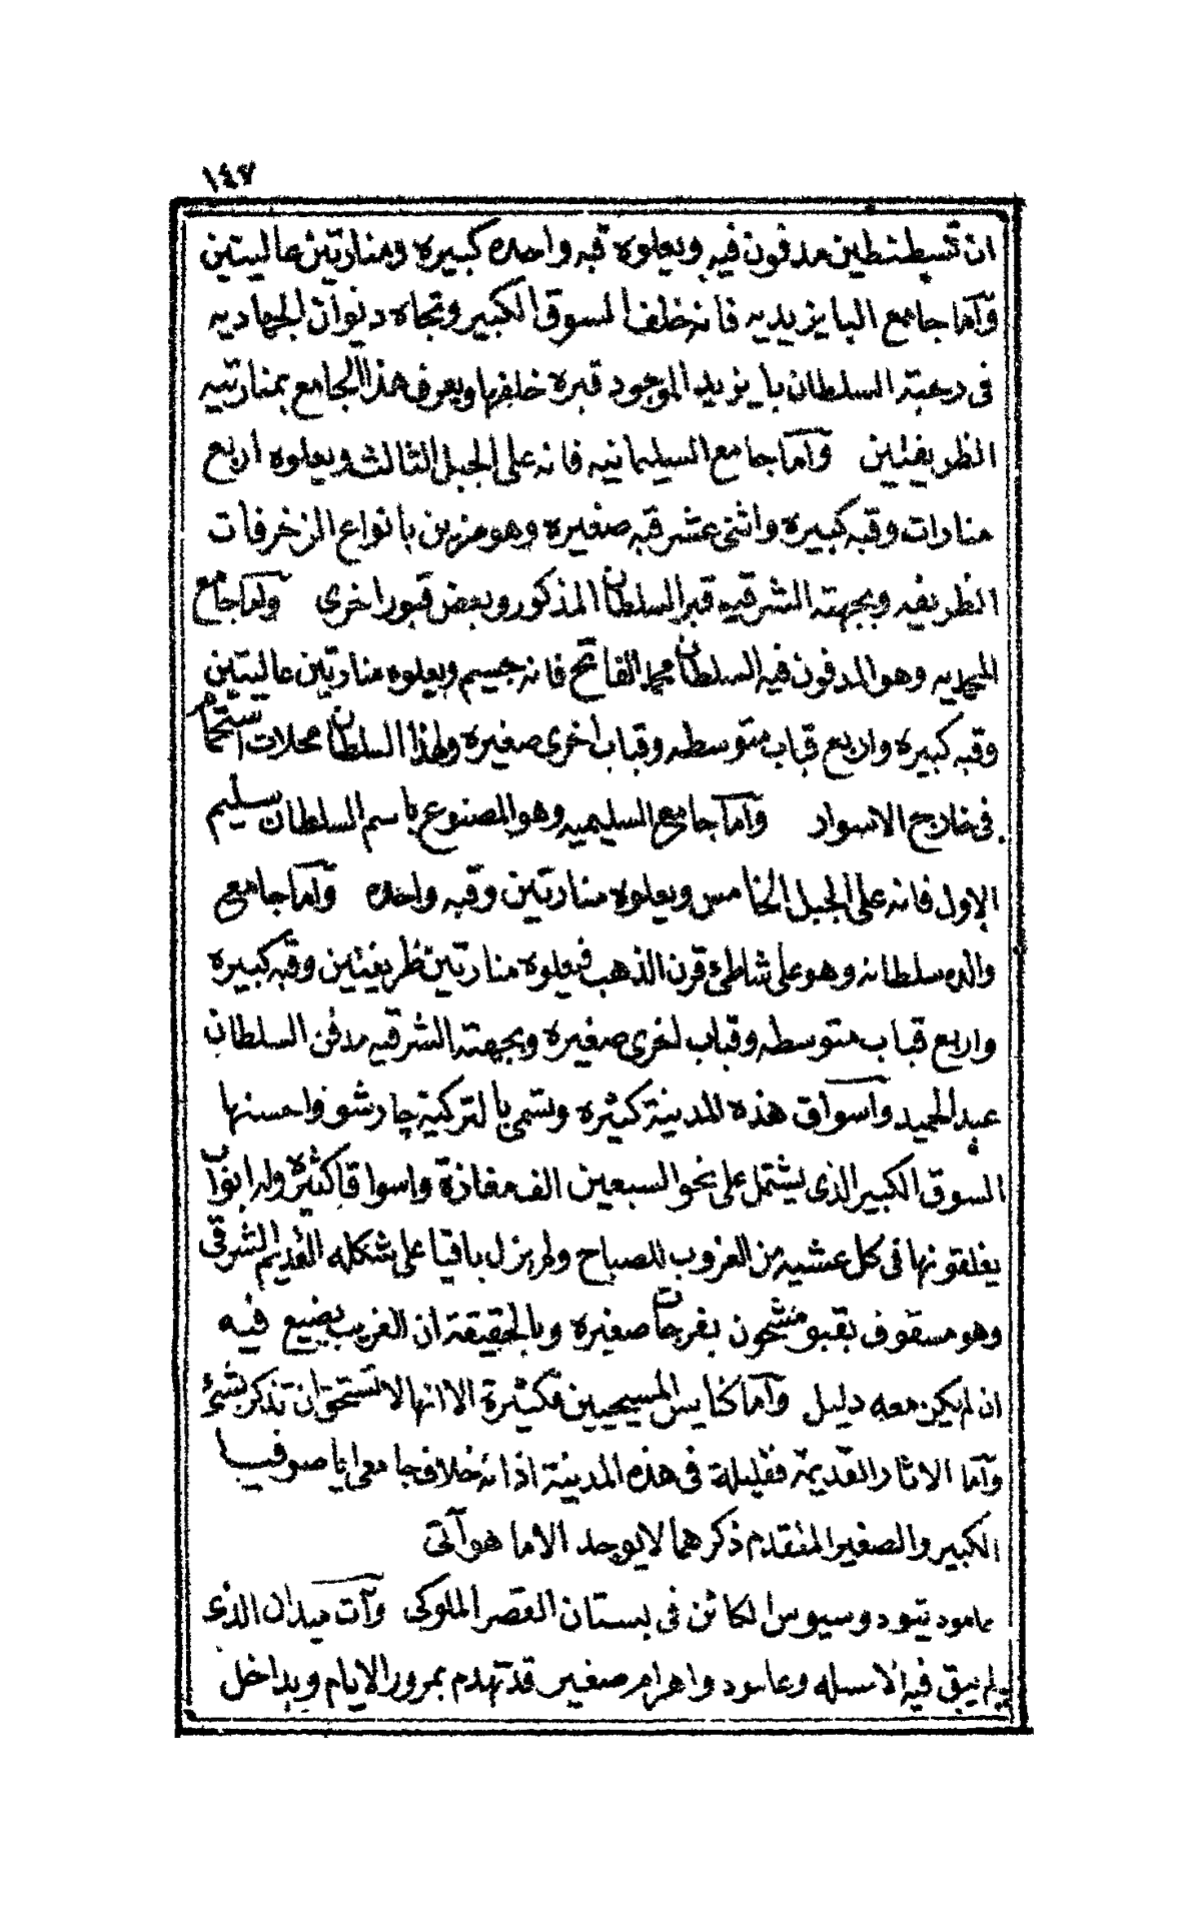 ١٤٧
ان قسطنطين مدفون فيه ويعلوه قبه واحده كبيره ومنارتين عاليتين
وآما جامع البايزيديه فانه خلف السوق الكبير وتجاه ديوان الجهاديه
فى رحبته السلطان بايزيد الموجود قبره خلفها ويعرف هذا الجامع بمنارتيه
الظريفتين وآما جامع السليمانيه فانه على الجبل الثالث ويعلوه اربع
منارات وقبه كبيره واثنى عشر قبه صغيره وهو مزين بانواع الزخرفات
الظريفه وبجهته الشرقيه قبر السلطان المذكور وبعض قبور اخرى وآما جامع
المحمديه وهو المدفون فيه السلطان محمد الفاتح فانه جسيم ويعلوه منارتين عاليتين
وقبه كبيره واربع قباب متوسطه وقباب اخرى صغيره ولهذا السلطان محلات استحمام
فى خارج الاسوار وآما جامع السليميه وهو المصنوع باسم السلطان سليم
الاول فانه على الجبل الخامس ويعلوه منارتين وقبه واحده وآما جامع
والده سلطانه وهو على شاطئ قرن الذهب فيعلوه منارتين ظريفتين وقبه كبيره
واربع قباب متوسطه وقباب اخرى صغيره وبجهته الشرقيه مدفن السلطان
عبد الحميد وآسواق هذه المدينة كثيره وتسمى بالتركية چارشو واحسنها
السوق الكبير الذى يشتمل على نحو السبعين الف مغازة واسواقا كثيره وله ابواب
يغلقونها فى كل عشيه من الغروب للصباح ولم يزل باقيا على شكله القديم الشرقى
وهو مسقوف بقبو مشحون بفرجات صغيره وبالحقيقة ان الغريب يضيع فيه
ان لم يكن معه دليل وآما كنايس المسيحيين فكثيرة الا انها لا تستحق ان تذكر بشئ
وآما الاثار القديمه فقليلة فى هذه المدينة اذ انه خلاف جامعى ايا صوفيا
الكبير والصغير المتقدم ذكرهما لا يوجد الا ما هو آتى
عامود تيود وسيوس الكائن فى بستان القصر الملوكى وآت ميدان الذى
لم يبق فيه الا مسله وعامود واهرام صغير قد تهدم بمرور الايام وبداخل